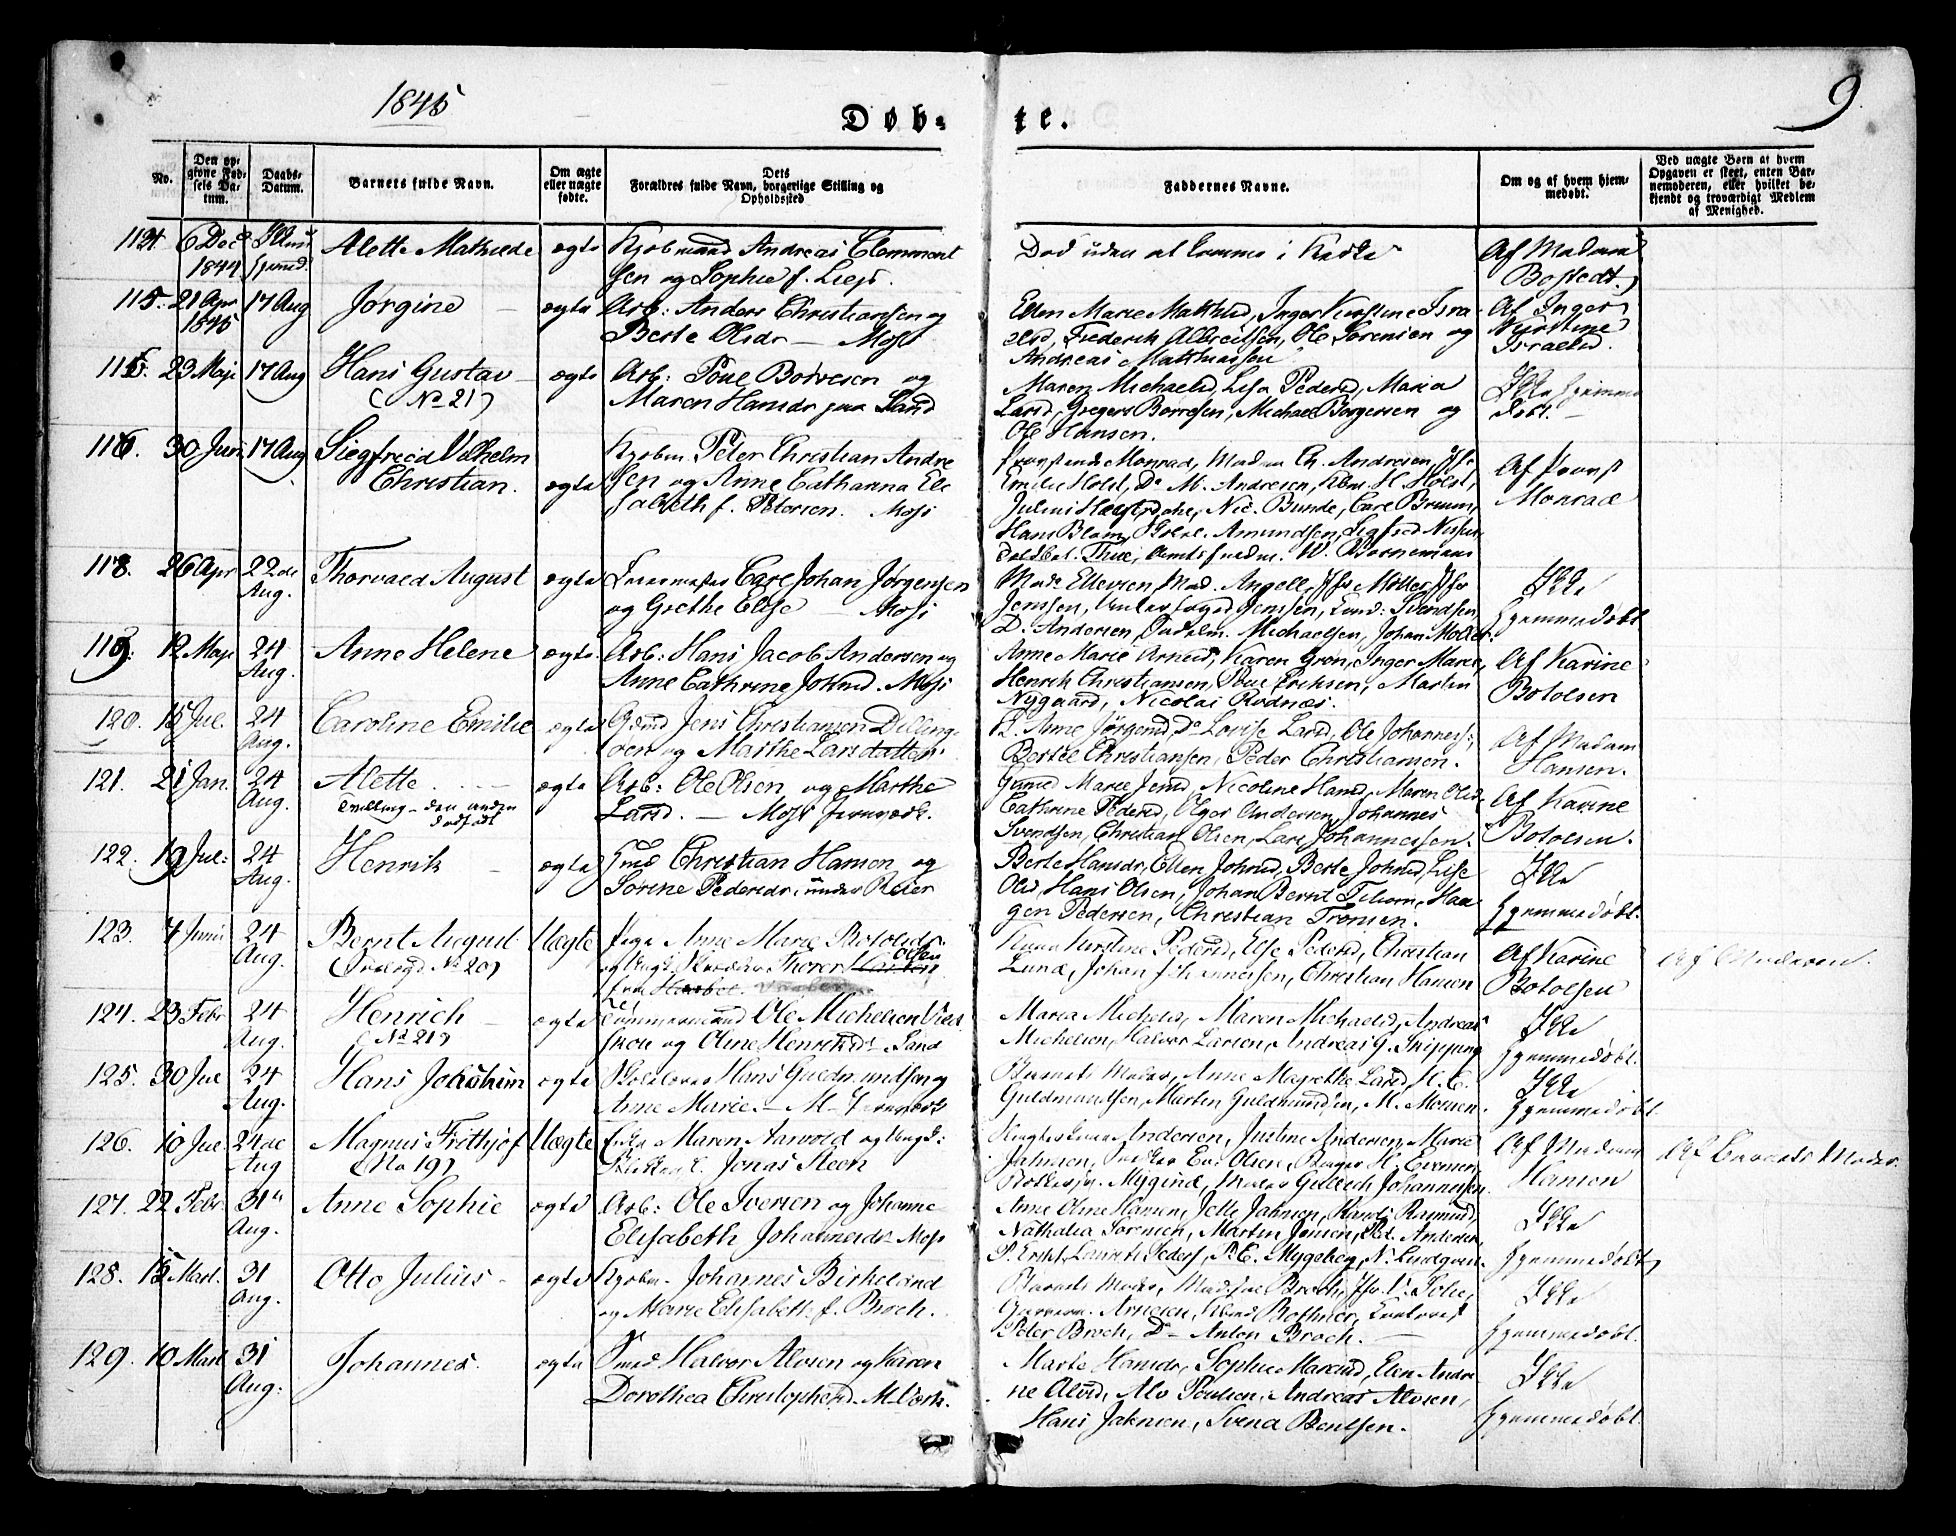 1845
9
Døb-
te.
No.
Den op-
givne Fød-
sels Da-
tum.
Daabs-
Datum.
Barnets fulde Navn.
Om ægte
eller uægte
fødte.
Dets
Forældres fulde Navn, borgerlige Stilling og
Opholdssted
Faddernes Navne.
Om og af hvem hjem-
medøbt.
Ved uægte Børn af hvem
Opgaven er skeet, enten Bar-
nemoderen, eller hvilket be-
kjendt og troværdigt Medlem
af Menighed.
114. 6 Dec
1844
Alette Mathilde
ægte
Kjøbmand Andreas Clemment
sen og Sophie f.
Død uden at komme i Kirke
Af Madam
Bostedt.
115. 21 Apr
1845
17 Aug
Jørgine
ægte
Arb: Anders Christiansen og
Berte Olsdr - Moss
Ellen Marie Matthisd, Inger Kirstine Isra
elsd, Frederik Albreitsen, Ole Sørensen og
Andreas Matthiassen
Af Inger
Kirstine
Israelsd.
23 Maji 17 Aug
Hans Gustav
(No 21)
ægte
Arb: Poul Borresen og
Maren Hansdr paa Sand
Maren Michaelsd, Lisa Pedersd, Maria
Larsd, Gregers Borresen, Michael Borgersen og
Ole Hansen.
Ikke hjemme
døbt.
116. 30 Juni 17 Aug
Siegfried Vilhelm
Christian.
ægte
Kjøbm. Peter Christian Andre
sen og Anne Catharina Eli
sabeth f. Petersen. Moss
Provstinde Monrad, Madm Ch. Andresen, Jfr
Emilie Holst, Do M. Andresen, Kbm. H. Holst,
Nic. Bunde, Carl Bruun,
Hans Blom, Amundsen, Sigfred
Thue,
Af Provst
Monrad
118. 26 Apr 22de
Aug.
Thorvald August
ægte
Carl Johan Jørgensen
og Grethe Elise - Moss
Madm Ellevsen, Mad. Angell, Jfr Møller, Jfr
Jenssen, Jenssen, Svendsen
D. Andersen, Michaelsen, Johan Møller.
Ikke
hjemmedøbt
119. 12 Maji 24
Aug.
Anne Helene
ægte.
Arb: Hans Jacob Andersen og
Anne Cathrine Johnsd. Moss
Anne Marie Arnesd, Karen Grøn, Inger Marie,
Henrik Christiansen, Poul Eriksen, Martin
Nygaard, Nicolai Rødnæs.
Af Karine
Botolsen
120. 15 Jul. 24
Aug.
Caroline Emilie
ægte
Gmd Jens Christiansen Dilling-
oen og Marthe Larsdatter.
P. Anne Jørgensd, Do Lovise Larsd, Ole Johanness,
Bertel Christiansen, Peder Christiansen.
Af Madam
Hansen.
121. 21 Jan. 24
Aug.
Alette
Tvilling - den anden
dødfødt
ægte
Arb: Ole Olsen og Marthe
Larsd. - Moss Jernværk.
Gunild Marie Jensd, Nicoline Hansd, Maren Olsd,
Cathrine Pedersd, Olger Andersen, Johannes
Svendsen, Christian Olsen, Lars Johannessen.
Af Karine
Botolsen.
122. 19 Jul: 24
Aug.
Henrik
ægte
Gmd Christian Hansen og
Sørine Pedersdr. under Reier
Berte Hansdr, Ellen Johnsd, Berte Johnsd, Lise
Olsd, Hans Olsen, Johan Bernt Tehorn, Haa
gen Pedersen, Christian Tronsen.
Ikke
hjemmedøbt.
123. 7 Junii 24
Aug.
Bernt August
No 20)
Uægte
Pige Anne Marie Botolsd
og Ungk. Skrædder Thorer Olsen
fra
Kirstine Pedersd, Else Pedersd, Christian
Lund, Johan Johannessen, Christian Hansen
Af Karine
Botolsen
Af Moderen.
124. 23 Febr 24
Aug.
Henrich
(No 21)
ægte
Tømmermand Ole Michelsen
og Oline Henriksdr Sand
Maria Michelsd, Maren Michaelsd, Andreas
Michelsen, Halvor Larsen, Andreas J. Skipping
Ikke
hjemmedøbt.
125. 30 Jul 24
Aug.
Hans Johahim
ægte
Hans Guldmundsen og
Anne Marie. - M. Jernværk
Barnets Moder, Anne Magrethe Larsd, H. C.
Guldmundsen, Martin Guldmundsen, M. Monsen.
Ikke
hjemmedøbt.
126. 10 Jul 24de
Aug
Magnus Frithjof
(No 19)
Uægte
Pige Maren Aarvold og Ungk:
Jonas Steen
Andersen, Justine Andersen, Marie
Jahnsen, Olsen, H. Evensen,
Mygind, Johannessen.
Af Madam
Hansen
Af Barnets Moder.
127. 22 Febr. 31te
Aug.
Anne Sophie
ægte
Arb: Ole Iversen og Johanne
Elisabeth Johannesdr Moss
Anne Oline Hansen, Jelle Jahnsen, Rasmusd,
Nathalia Sørensen, Martin Jensen, Andersen,
P. C. Mygeberg, N. Lindgren.
Ikke
hjemmedøbt
128. 15 Marts 31
Aug.
Otto Julius
ægte
Kjøbm. Johannes Birkeland
og Marie Elisabeth f. Broch.
Barnets Moder, Madame Broch, Jfr.
Arnesen, Bothner,
Peter Broch, Do Anton Broch.
Ikke
hjemmedøbt.
129. 10 Marts 31
Aug:
Johannes.
ægte
Smed Halvor Alvsen og Karen
Dorothea Christophersd. M. Værk.
Marte Hansdr, Sophie Mariusd, Elen Andr
ne Olsd, Alv Poulsen, Andreas Alvsen,
Hans Jahnsen, Svend Bentsen.
Ikke
hjemmedøbt.